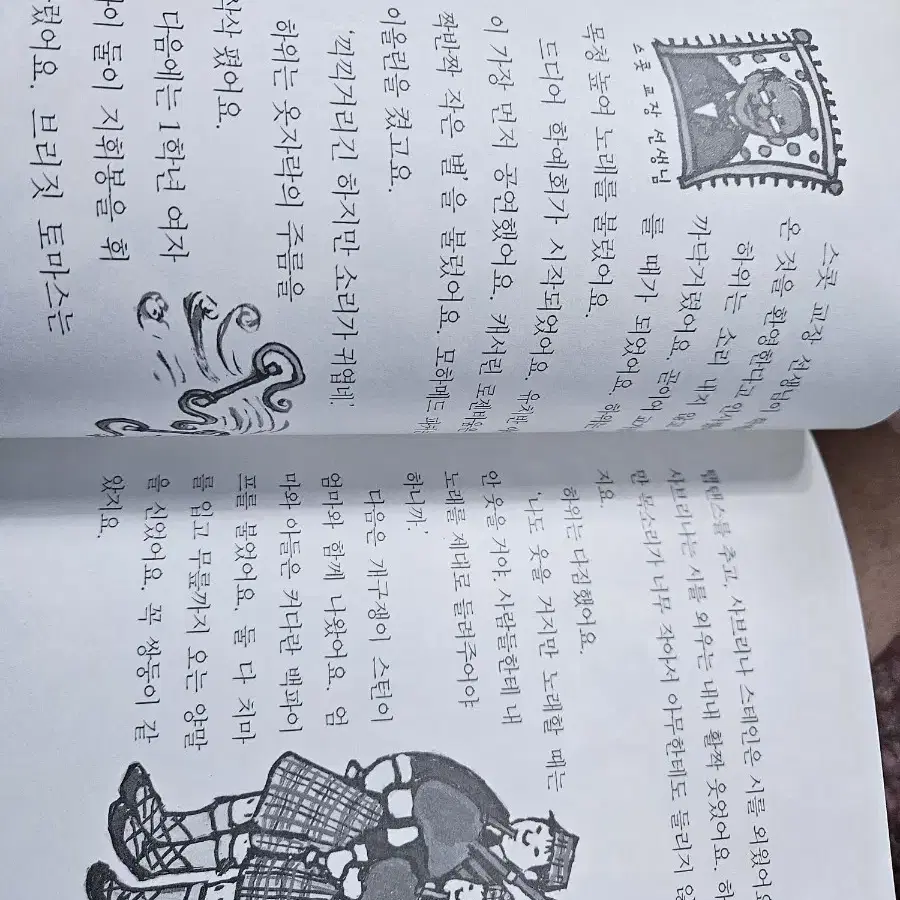 스콧 교장 선생님
스콧 교장 선생님이
은 것을 환영한다고
하위는 소리 내지 않고
까닥거렸어요. 곧이어
를 때가 되었어요. 하위는
목청 높여 노래를 불렀어요.
드디어 학예회가 시작되었어요. 유치반
이 가장 먼저 공연했어요. 캐서린
짝반짝 작은 별'을 불렀어요. 모하메드
이올린을 켰고요.
'끽끽거리긴 하지만 소리가 귀엽네.'
하위는 옷자락의 주름을
폈어요.
다음에는 1학년 여자
둘이 지휘봉을 휘
렸어요. 브리짓 토마스는
탭댄스를 추고, 사브리나 스테인은 시를 외웠어요
사브리나는 시를 외우는 내내 활짝 웃었어요. 하
만 목소리가 너무 작아서 아무한테도 들리지 않
지요.
하위는 다짐했어요.
'나도 웃을 거지만 노래할 때는
안 웃을 거야. 사람들한테 내
노래를 제대로 들려주어야
하니까.'
다음은 개구쟁이 스틴이
엄마와 함께 나왔어요. 엄
마와 아들은 커다란 백파이
프를 불었어요. 둘 다 치마
를 입고 무릎까지 오는 양말
을 신었어요. 꼭 쌍둥이 같
았지요.